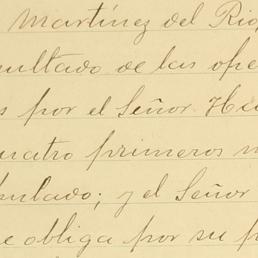 Martínez del Rio,
sultado de las ope
s por el Señor Hu
uatro primeros m
pulado; y el Señor
e obliga por su p